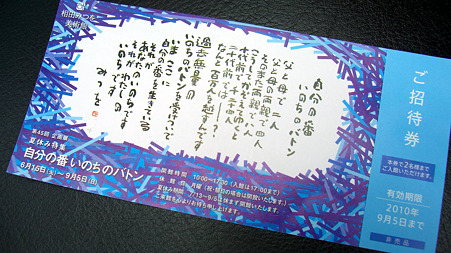 相田みつを
美術館
自分の番
いのちのバトン
父と母で二人
父と母の両親で四人
そのまた両親で八人
こうしてかぞえてゆくと
十代前で千二十四人
二十代前では―?
なんと百万人を越すんです
過去無量の
いのちのバトンを受けついで
いまここに
自分の番を生きている
それが
あなたのいのちです
それがわたしの
いのちです
みつを
第45回 企画展
夏休み特集
自分の番 いのちのバトン
6月15日(火)〜9月5日(日)
開館時間 10:00〜17:30(入館は17:00まで)
ご来館を心よりお待ち申し上げます。
ご招待券
本券で2名様まで
ご入館いただけます。
有効期限
2010年
9月5日まで
非売品